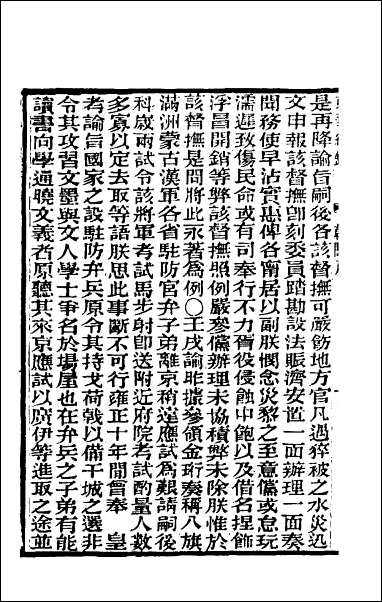 是再降諭旨嗣後各該督撫可嚴飭地方官凡遇猝被之水災迅
文申報該督撫卽刻委員踏勘設法賑濟安置一面辦理一面奏
聞務使早沾實惠俾各甯居以副朕憫念災黎之至意儻或怠玩
濡遲致傷民命或有司奉行不力胥役侵蝕中飽以及借名捏飾
浮冒開銷等弊該督撫照例嚴參儻辦理未協積弊未除朕惟於
該督撫是問將此永著爲例〇壬戌諭昨據參領金珩奏稱八旗
滿洲蒙古漢軍各省駐防官弁子弟離京稍遠應試爲艱請嗣後
科歲兩試令該將軍考試馬步射卽送附近府院考試酌量人數
多寡以定去取等語朕思此事斷不可行雍正十年間曾奉 皇
考諭旨國家之設駐防弁兵原令其持戈荷戟以備干城之選非
令其攻習文墨與文人學士爭名於場屋也在弁兵之子弟有能
讀書向學通曉文義者原聽其來京應試以廣伊等進取之途並